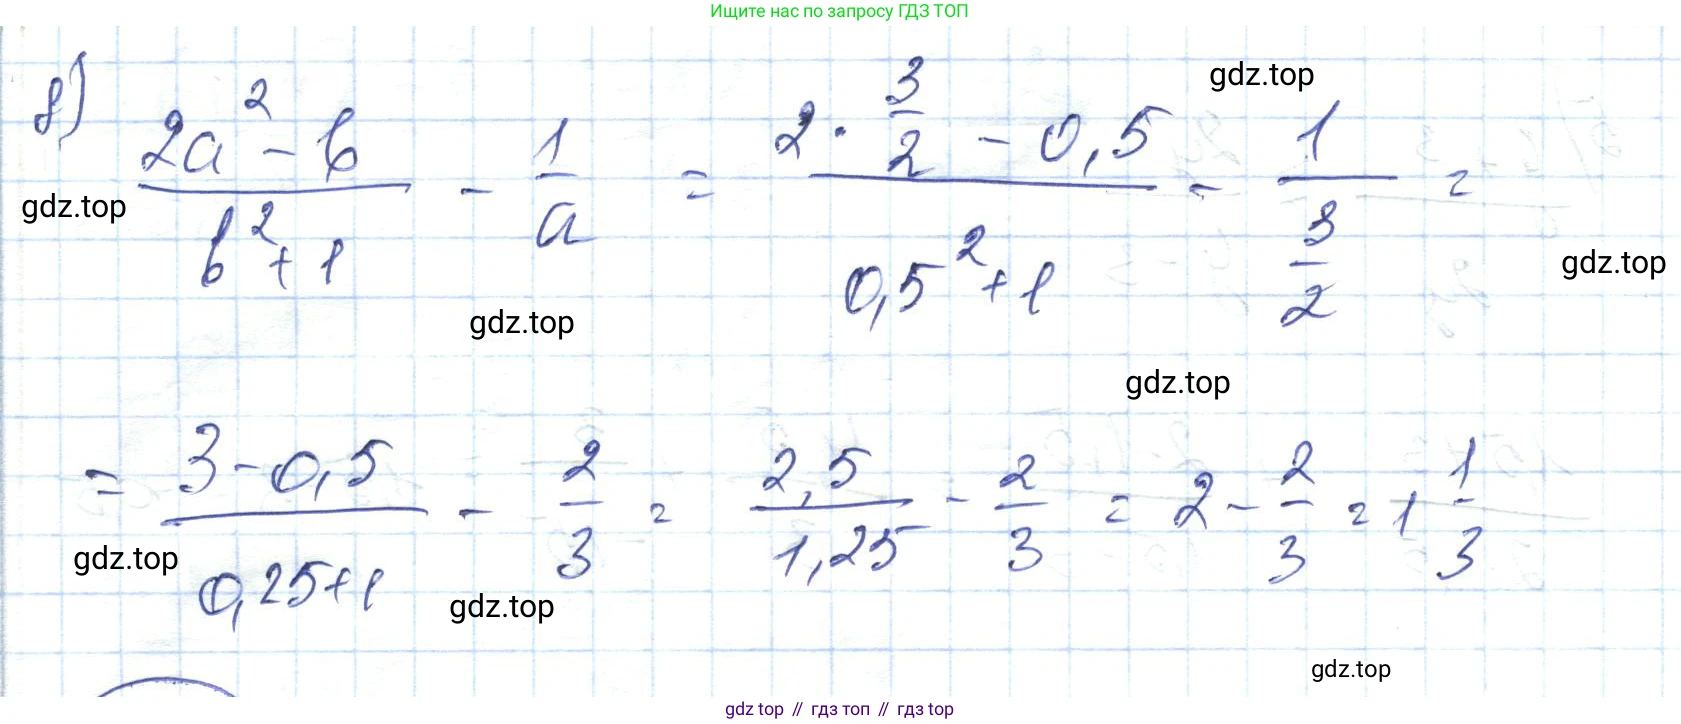 Ищите нас по запросу ГДЗ ТОП
gdz.top
в) (2a² - b)/(b² + 1) - 1/a = (2 · 3/2 - 0,5)/(0,5² + 1) - 1/(3/2) =
gdz.top
gdz.top
gdz.top
gdz.top
= (3 - 0,5)/(0,25 + 1) - 2/3 = 2,5/1,25 - 2/3 = 2 - 2/3 = 1 1/3
gdz.top
gdz.top
gdz.top
gdz top // гдз топ // гдз top